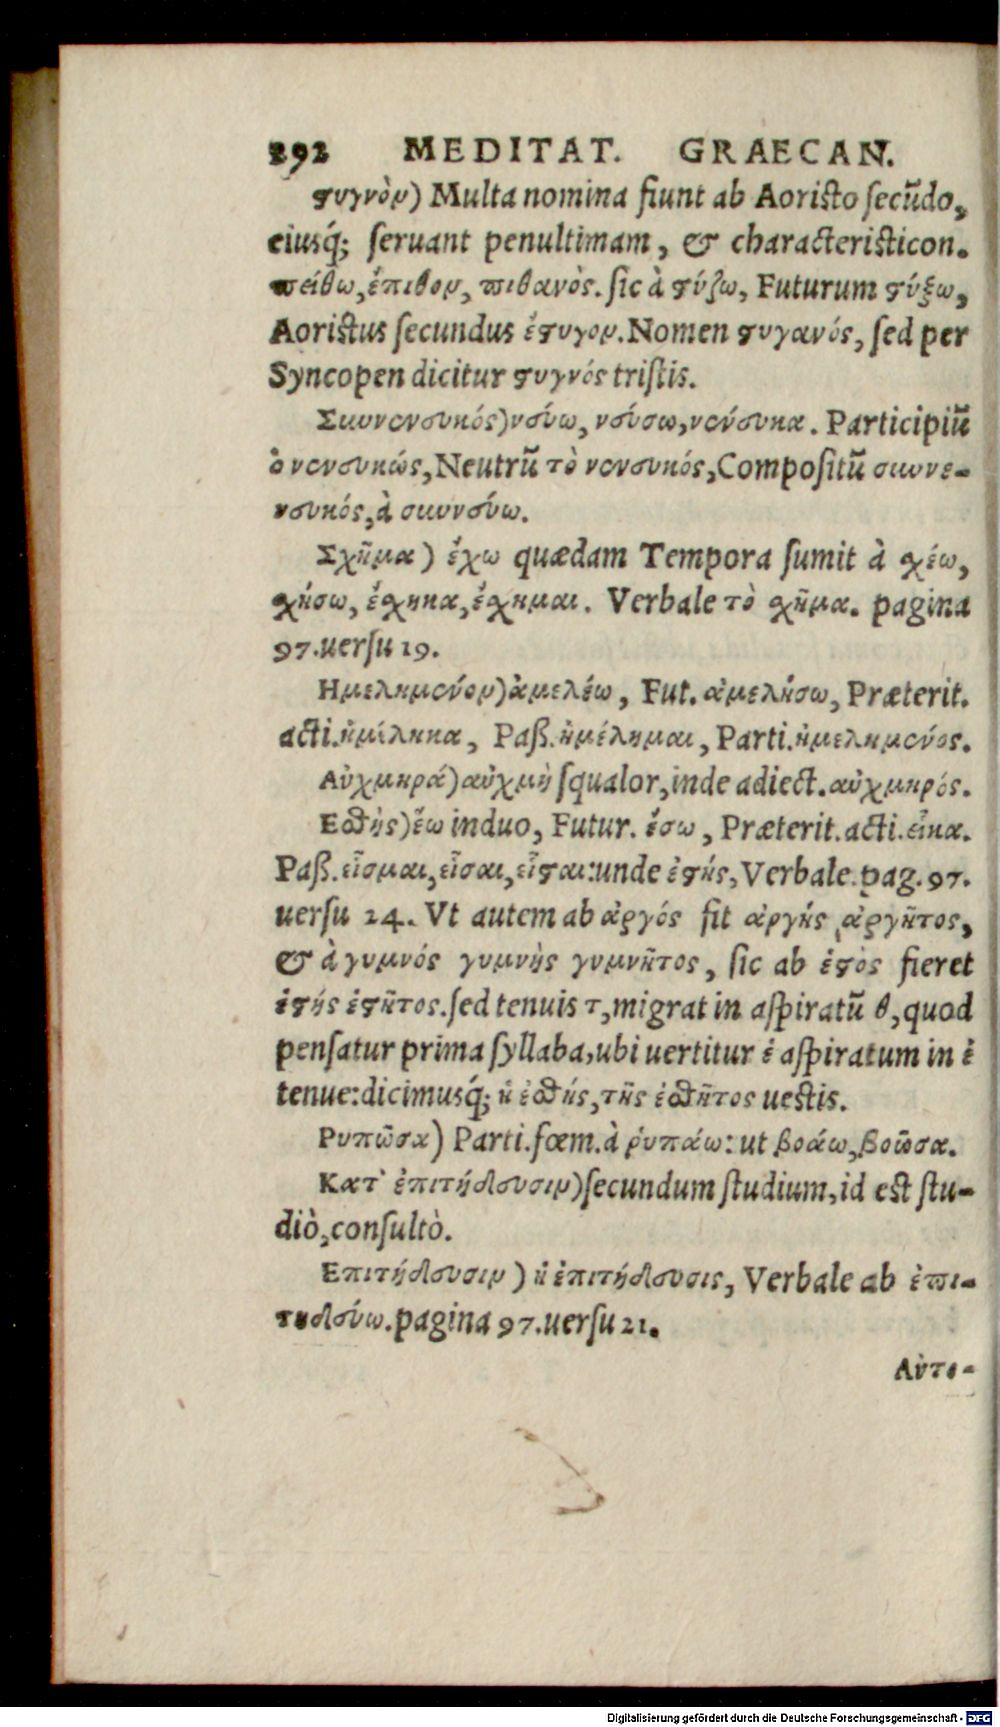 292 MEDITAT. GRAECAN.
στυγνὸν) Multa nomina fiunt ab Aoristo secũdo,
eiusq́; seruant penultimam, & characteristicon.
πείθω, ἔπιθον, πιθανὸς. sic à στύζω, Futurum στύξω,
Aoristus secundus ἔστυγον. Nomen στυγανός, sed per
Syncopen dicitur στυγνός tristis.
Σκυνενευκός) νεύω, νεύσω, νένευκα. Participiũ
ὁ νενευκώς, Neutrũ τὸ νενευκός, Compositũ σκυνε-
νευκός, à σκυννεύω.
Σχῆμα) ἔχω quædam Tempora sumit à σχέω,
σχήσω, ἔσχηκα, ἔσχημαι. Verbale τὸ σχῆμα. pagina
97. uersu 19.
Ημελημένον) ἀμελέω, Fut. ἀμελήσω, Præterit.
acti. ἠμέληκα, Paß. ἠμέλημαι, Parti. ἠμελημένος.
Αὐχμηρά) αὐχμὴ squalor, inde adiect. αὐχμηρός.
Εσθὴς) ἕω induo, Futur. ἕσω, Præterit. acti. εἷκα.
Paß. εἷσμαι, εἷσαι, εἷσται: unde ἑστής, Verbale. pag. 97.
uersu 24. Vt autem ab ἀργός fit ἀργής ἀργῆτος,
& à γυμνός γυμνὴς γυμνῆτος, sic ab ἑστὸς fieret
ἑστής ἑστῆτος. sed tenuis τ, migrat in aspiratũ θ, quod
pensatur prima syllaba, ubi uertitur ἑ aspiratum in ἐ
tenue: dicimusq́; ἡ ἐσθής, τῆς ἐσθῆτος uestis.
Ρυπῶσα) Parti. fœm. à ῥυπάω: ut βοάω, βοῶσα.
Κατ' ἐπιτήδευσιν) secundum studium, id est stu-
diò, consultò.
Επιτήδευσιν) ἡ ἐπιτήδευσις, Verbale ab ἐπι-
τηδεύω. pagina 97. uersu 21.
Αὐτο-
Digitalisierung gefördert durch die Deutsche Forschungsgemeinschaft - DFG